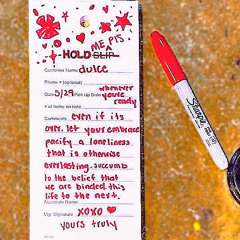 HOLD SLIP ME PLS
Customer Name dulce
Phone # (optional)
Date 5/29 Pick Up Date whenever you're ready
# of items on hold
Comments even if its
over. let your embrace
pacify a loneliness
that is otherwise
everlasting. succumb
to the belief that
we are binded this
life to the next.
Associate Name
Mgr Signature XOXO
yours truly
Sharpie